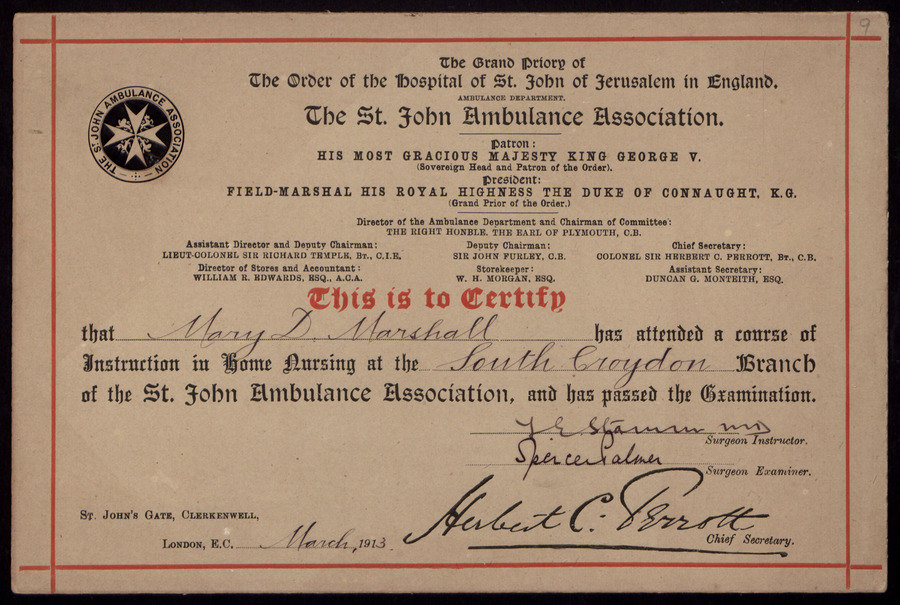 9
The Grand Priory of
The Order of the Hospital of St. John of Jerusalem in England.
AMBULANCE DEPARTMENT.
The St. John Ambulance Association.
THE ST JOHN AMBULANCE ASSOCIATION
Patron:
HIS MOST GRACIOUS MAJESTY KING GEORGE V.
(Sovereign Head and Patron of the Order).
President:
FIELD-MARSHAL HIS ROYAL HIGHNESS THE DUKE OF CONNAUGHT, K.G.
(Grand Prior of the Order.)
Director of the Ambulance Department and Chairman of Committee:
THE RIGHT HONBLE. THE EARL OF PLYMOUTH, C.B.
Assistant Director and Deputy Chairman: Deputy Chairman: Chief Secretary:
LIEUT-COLONEL SIR RICHARD TEMPLE, BT., C.I.E. SIR JOHN FURLEY, C.B. COLONEL SIR HERBERT C. PERROTT, BT., C.B.
Director of Stores and Accountant: Storekeeper: Assistant Secretary:
WILLIAM R. EDWARDS, ESQ., A.C.A. W. H. MORGAN, ESQ. DUNCAN G. MONTEITH, ESQ.
This is to Certify
that Mary D. Marshall has attended a course of
Instruction in Home Nursing at the South Croydon Branch
of the St. John Ambulance Association, and has passed the Examination.
Stamm MD
Surgeon Instructor.
Spencer Palmer
Surgeon Examiner.
Herbert C. Perrott
Chief Secretary.
ST. JOHN'S GATE, CLERKENWELL,
LONDON, E.C. March, 1913.